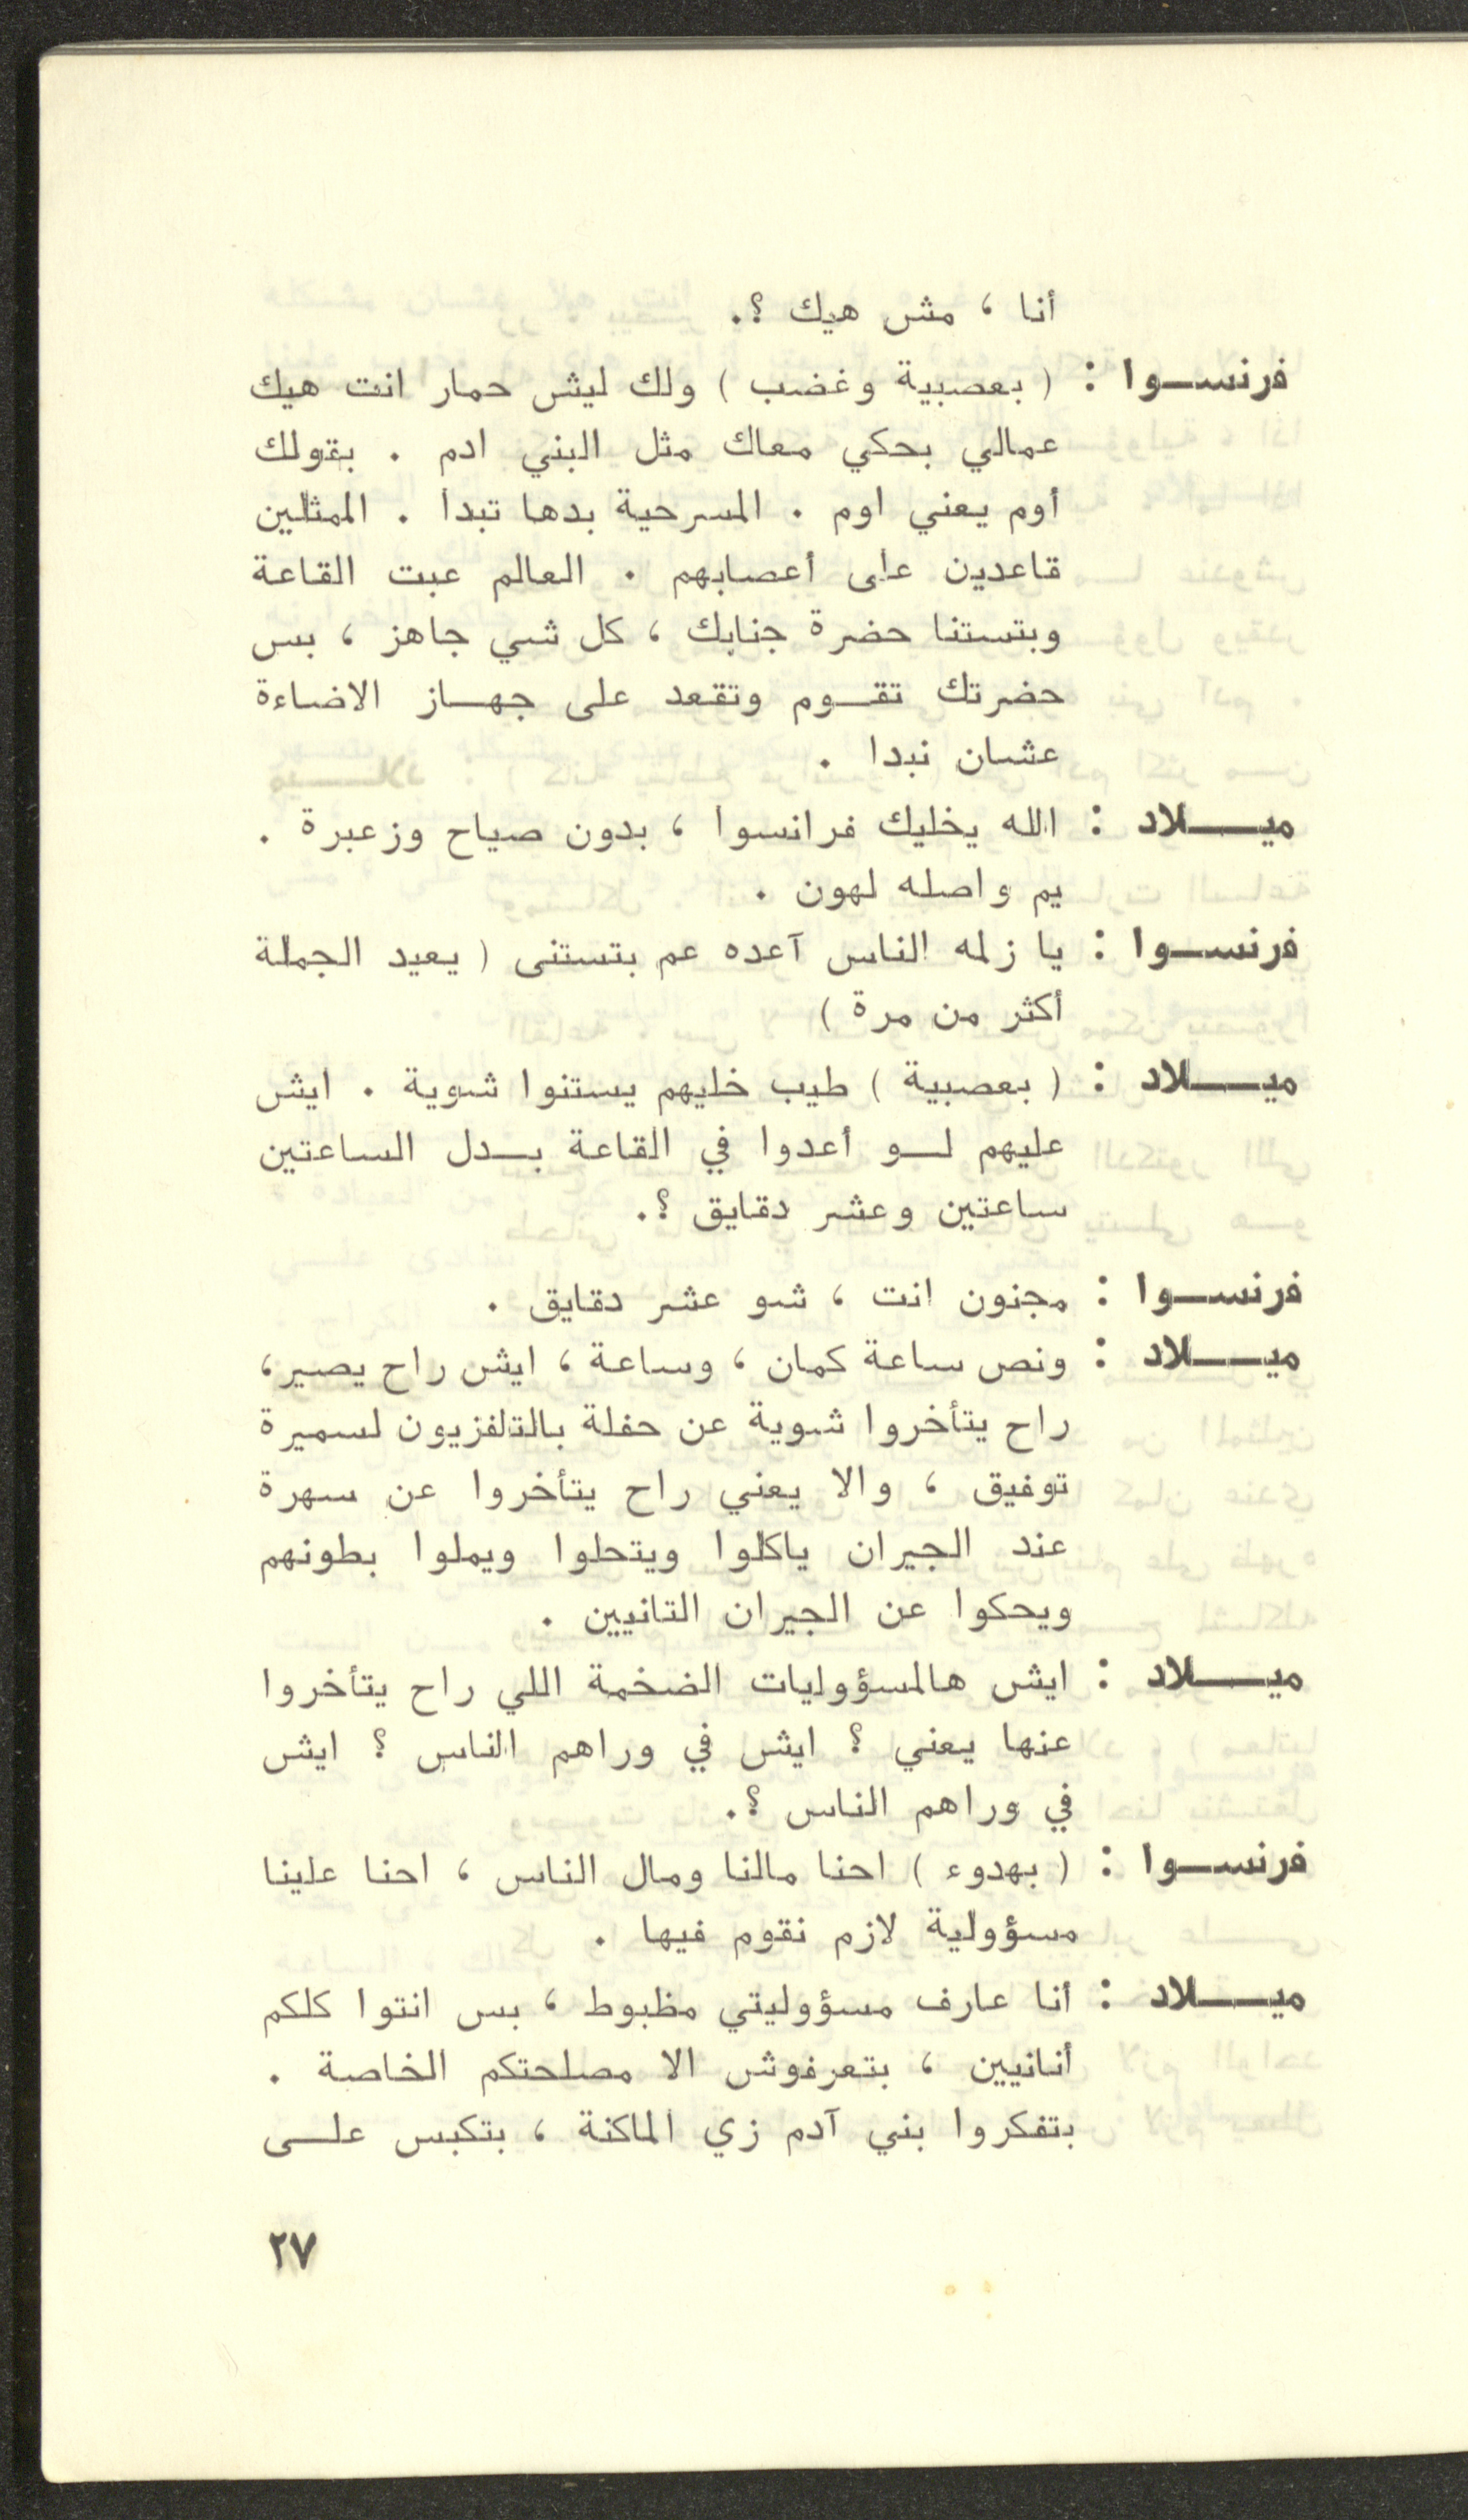 أنا ، مش هيك ؟.
فرنسـوا : ( بعصبية وغضب ) ولك ليش حمار انت هيك
عمالي بحكي معاك مثل البني ادم . بقولك
أوم يعني اوم . المسرحية بدها تبدأ . الممثلين
قاعدين على أعصابهم . العالم عبت القاعة
وبتستنا حضرة جنابك ، كل شي جاهز ، بس
حضرتك تقـوم وتقعد على جهـاز الاضاءة
عشان نبدا .
ميــلاد : الله يخليك فرانسوا ، بدون صياح وزعبرة .
يم واصله لهون .
فرنسـوا : يا زلمه الناس آعده عم بتستنى ( يعيد الجملة
أكثر من مرة )
ميــلاد : ( بعصبية ) طيب خليهم يستنوا شوية . ايش
عليهم لـو أعدوا في القاعة بـدل الساعتين
ساعتين وعشر دقايق ؟.
فرنسـوا : مجنون انت ، شو عشر دقايق .
ميــلاد : ونص ساعة كمان ، وساعة ، ايش راح يصير،
راح يتأخروا شوية عن حفلة بالتلفزيون لسميرة
توفيق ، والا يعني راح يتأخروا عن سهرة
عند الجيران ياكلوا ويتحلوا ويملوا بطونهم
ويحكوا عن الجيران التانيين .
ميــلاد : ايش هالمسؤوليات الضخمة اللي راح يتأخروا
عنها يعني ؟ ايش في وراهم الناس ؟ ايش
في وراهم الناس ؟.
فرنسـوا : ( بهدوء ) احنا مالنا ومال الناس ، احنا علينا
مسؤولية لازم نقوم فيها .
ميــلاد : أنا عارف مسؤوليتي مظبوط ، بس انتوا كلكم
أنانيين ، بتعرفوش الا مصلحتكم الخاصة .
بتفكروا بني آدم زي الماكنة ، بتكبس علـى
٢٧